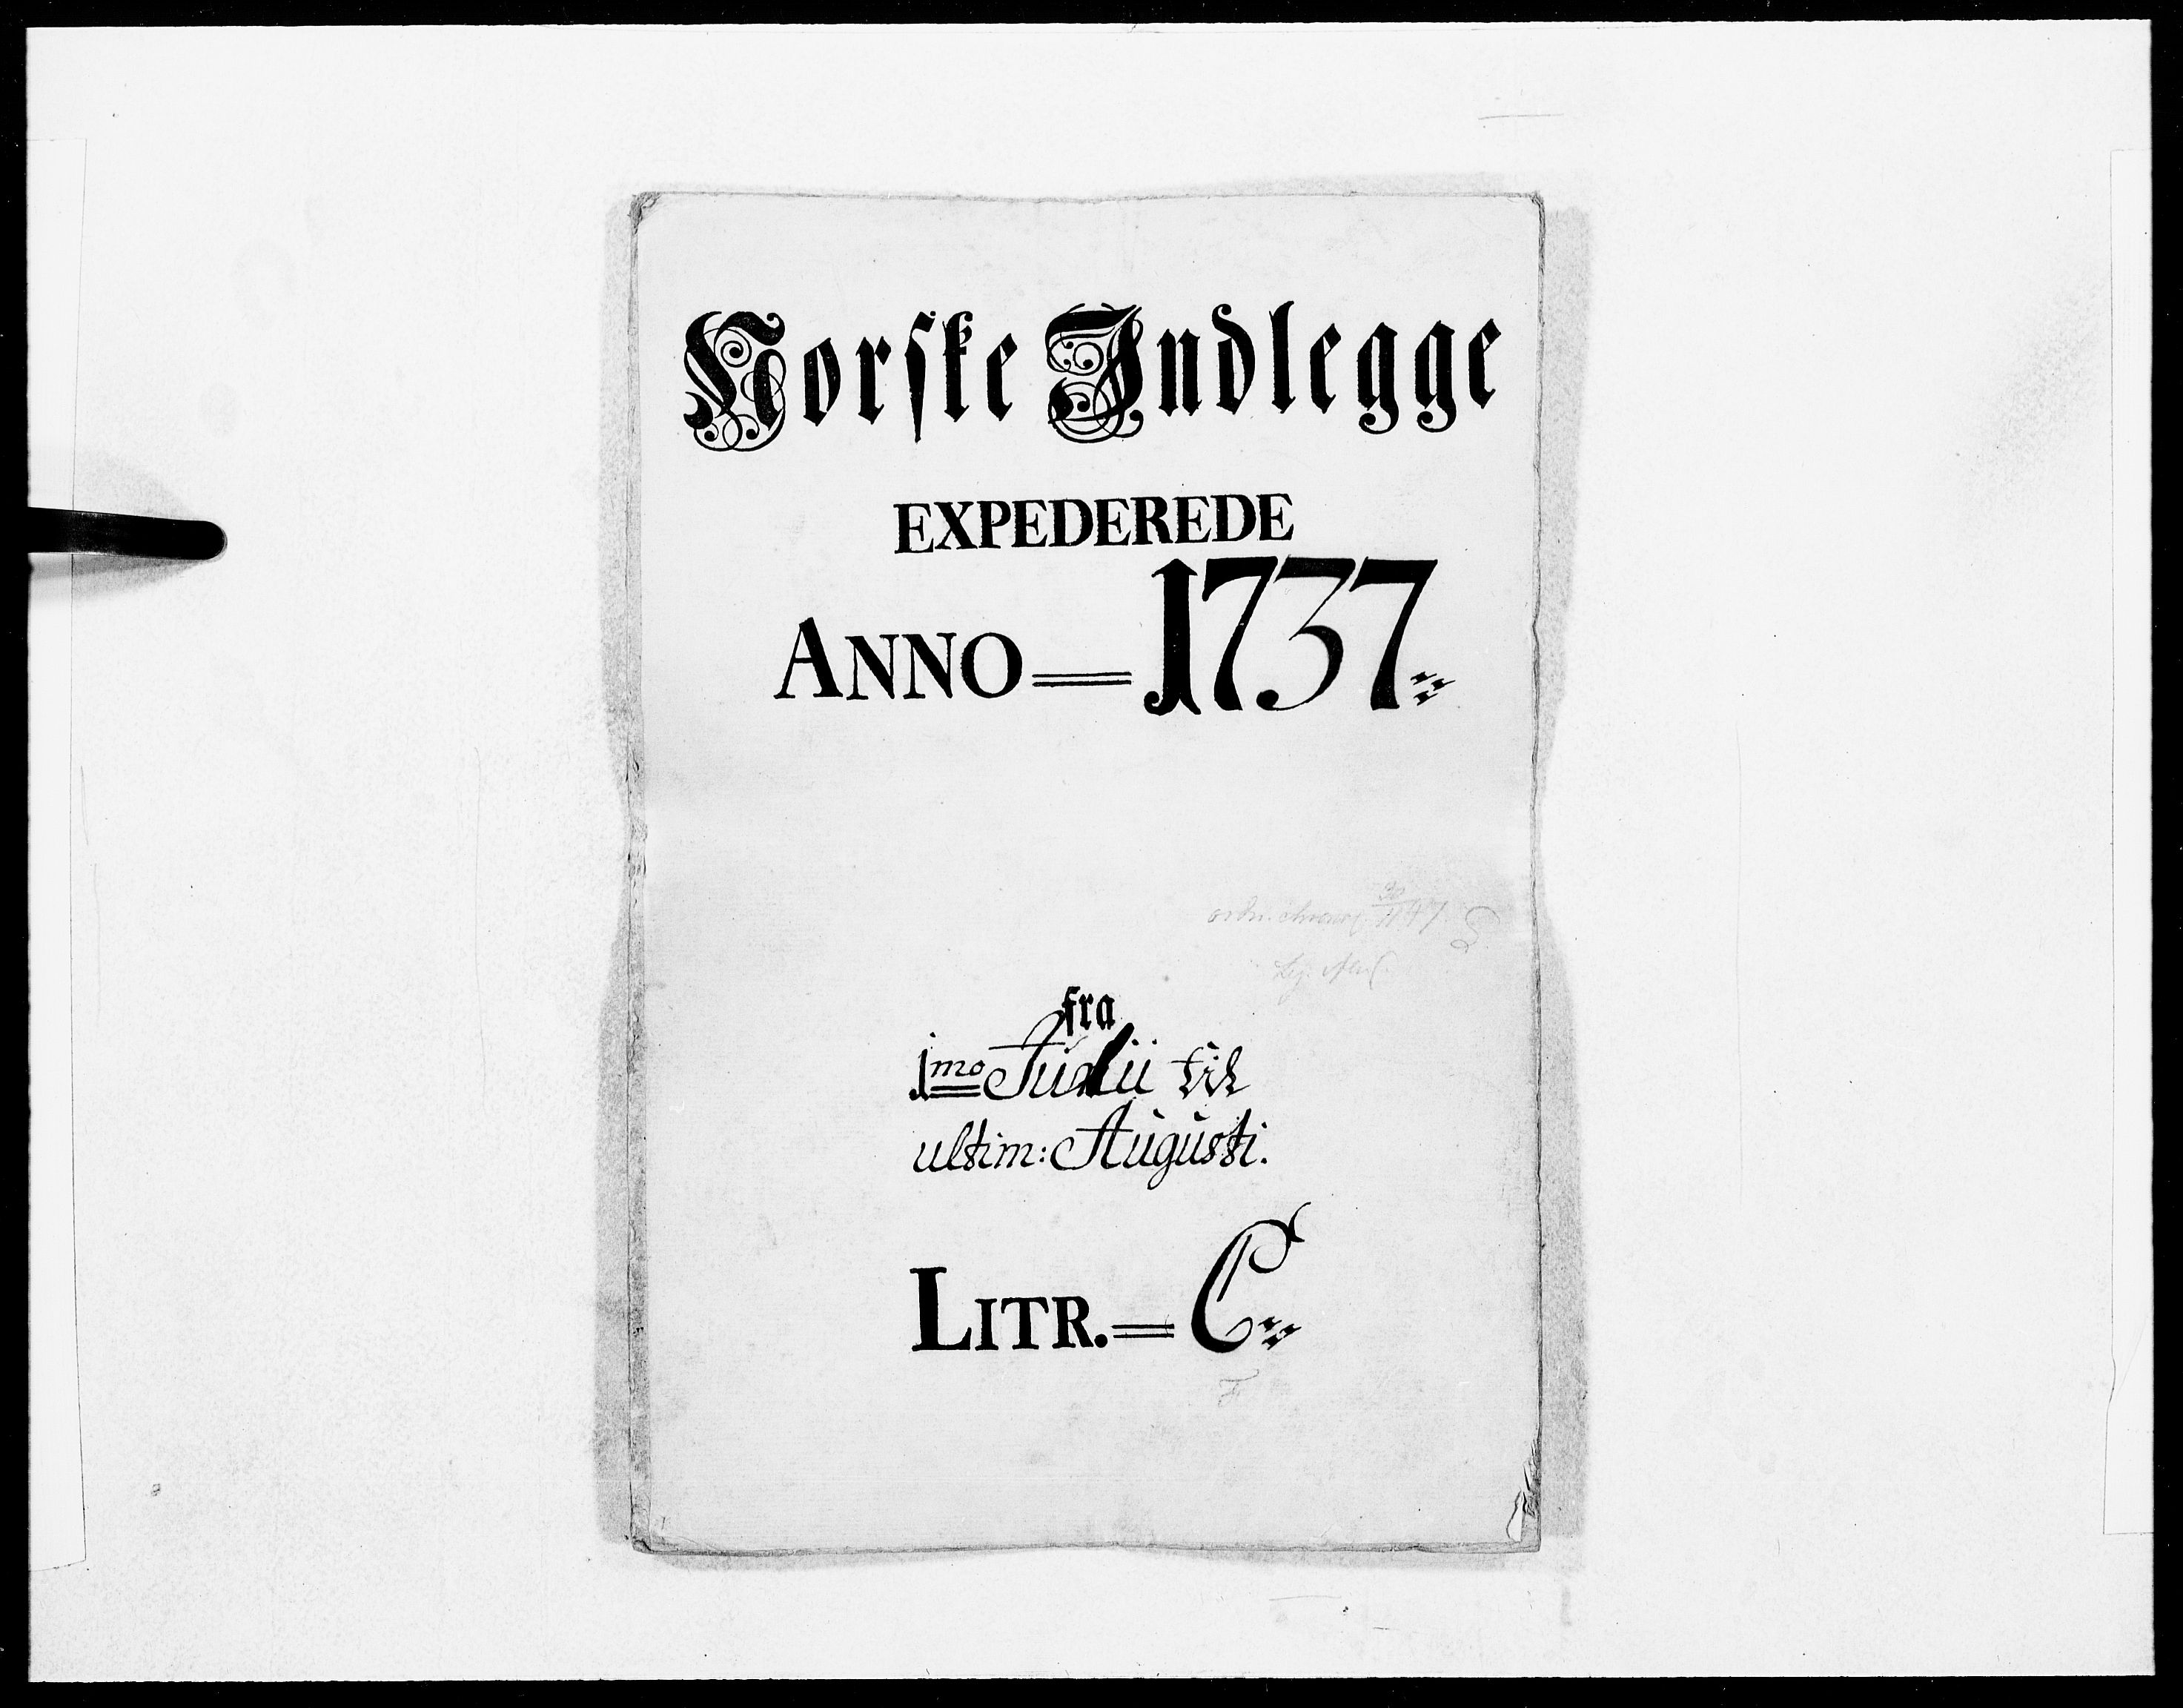 Norske Indlegge
EXPEDEREDE
ANNO = 1737
fra
1mo Julii til
ultim: Augusti.
LITR. = C